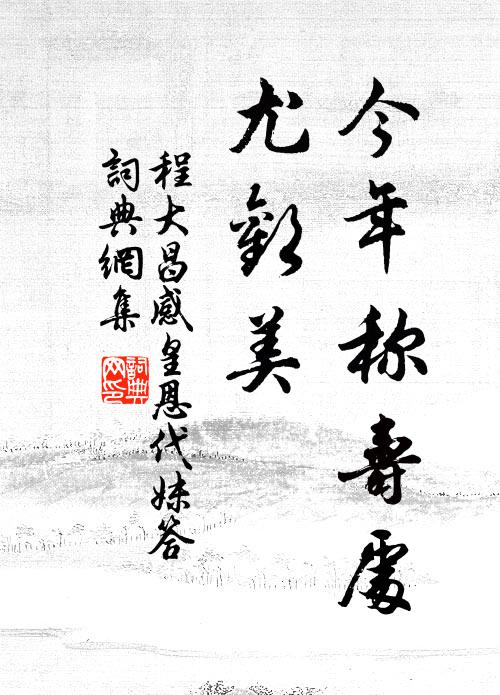 今年称壽處
尤歡美
程大昌感皇恩代妹答
詞典網集
詞典
网印